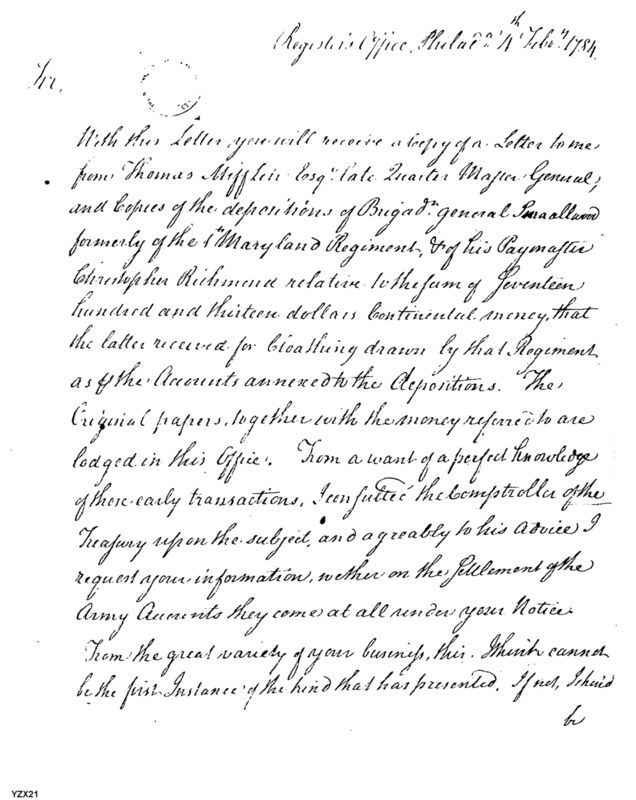 Register's Office, Philada. 4th Feby. 1784.
Sir,
With this Letter, you will receive a Copy of a Letter to me
from Thomas Mifflin Esqr. late Quarter Master General,
and Copies of the depositions of Brigadr. general Smallwood
formerly of the 1st Maryland Regiment, & of his Paymaster
Christopher Richmond relative to the sum of Seventeen
hundred and thirteen dollars Continental money, that
the latter received for Cloathing drawn by that Regiment
as the Accounts annexed to the depositions. The
Original papers, together with the money referred to are
lodged in this Office. From a want of a perfect knowledge
of those early transactions, I consulted the Comptroller of the
Treasury upon the subject, and agreably to his Advice I
request your information, wether on the Settlement of the
Army Accounts they come at all under your Notice.
From the great variety of your business, this I think cannot
be the first Instance of the kind that has presented. If not, I should
be
YZX21